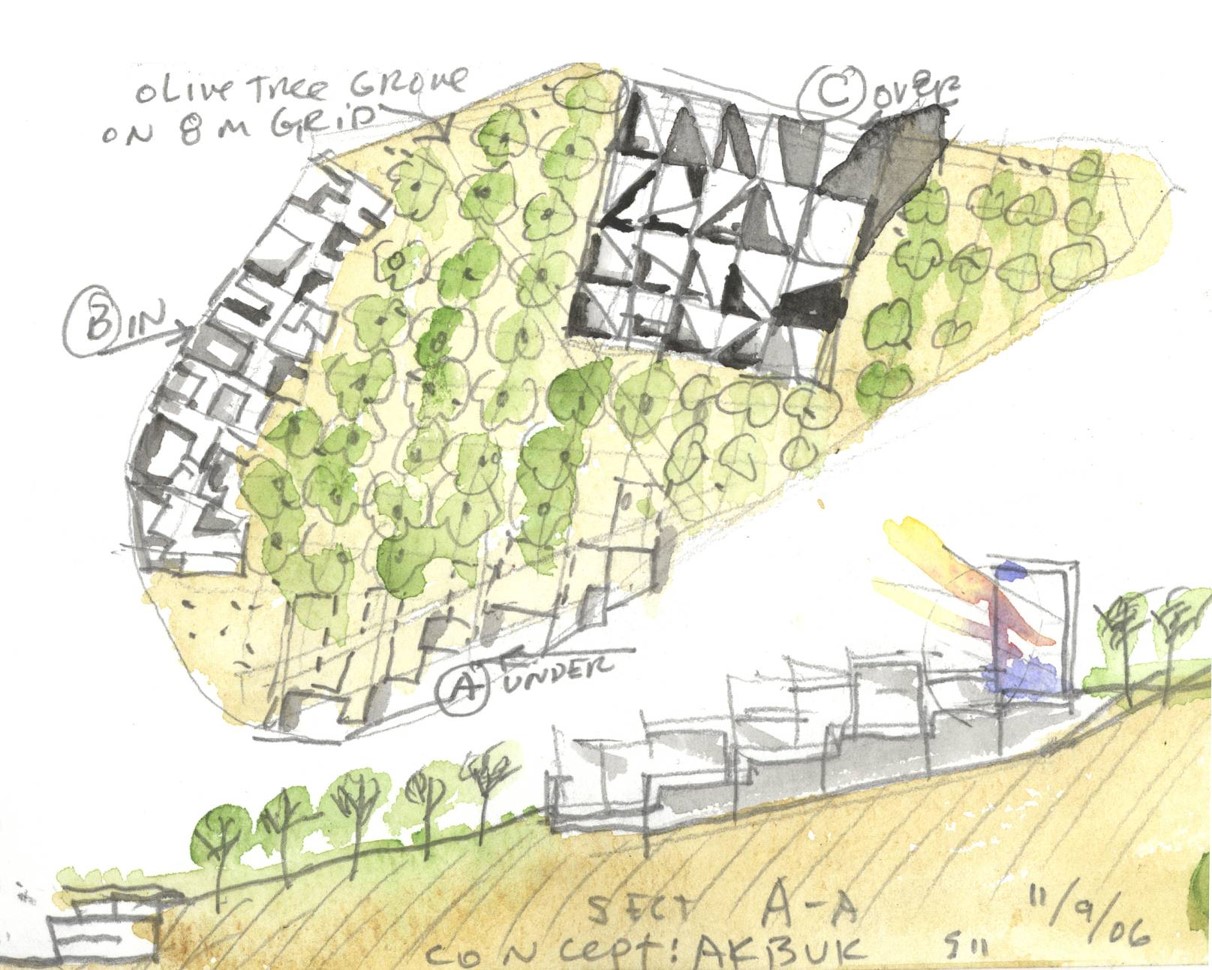 OLive Tree GROVE
ON 8 M GRiD
C OVER
B IN
A UNDER
SECT A-A
11/9/06
CONCePT: AKBUK